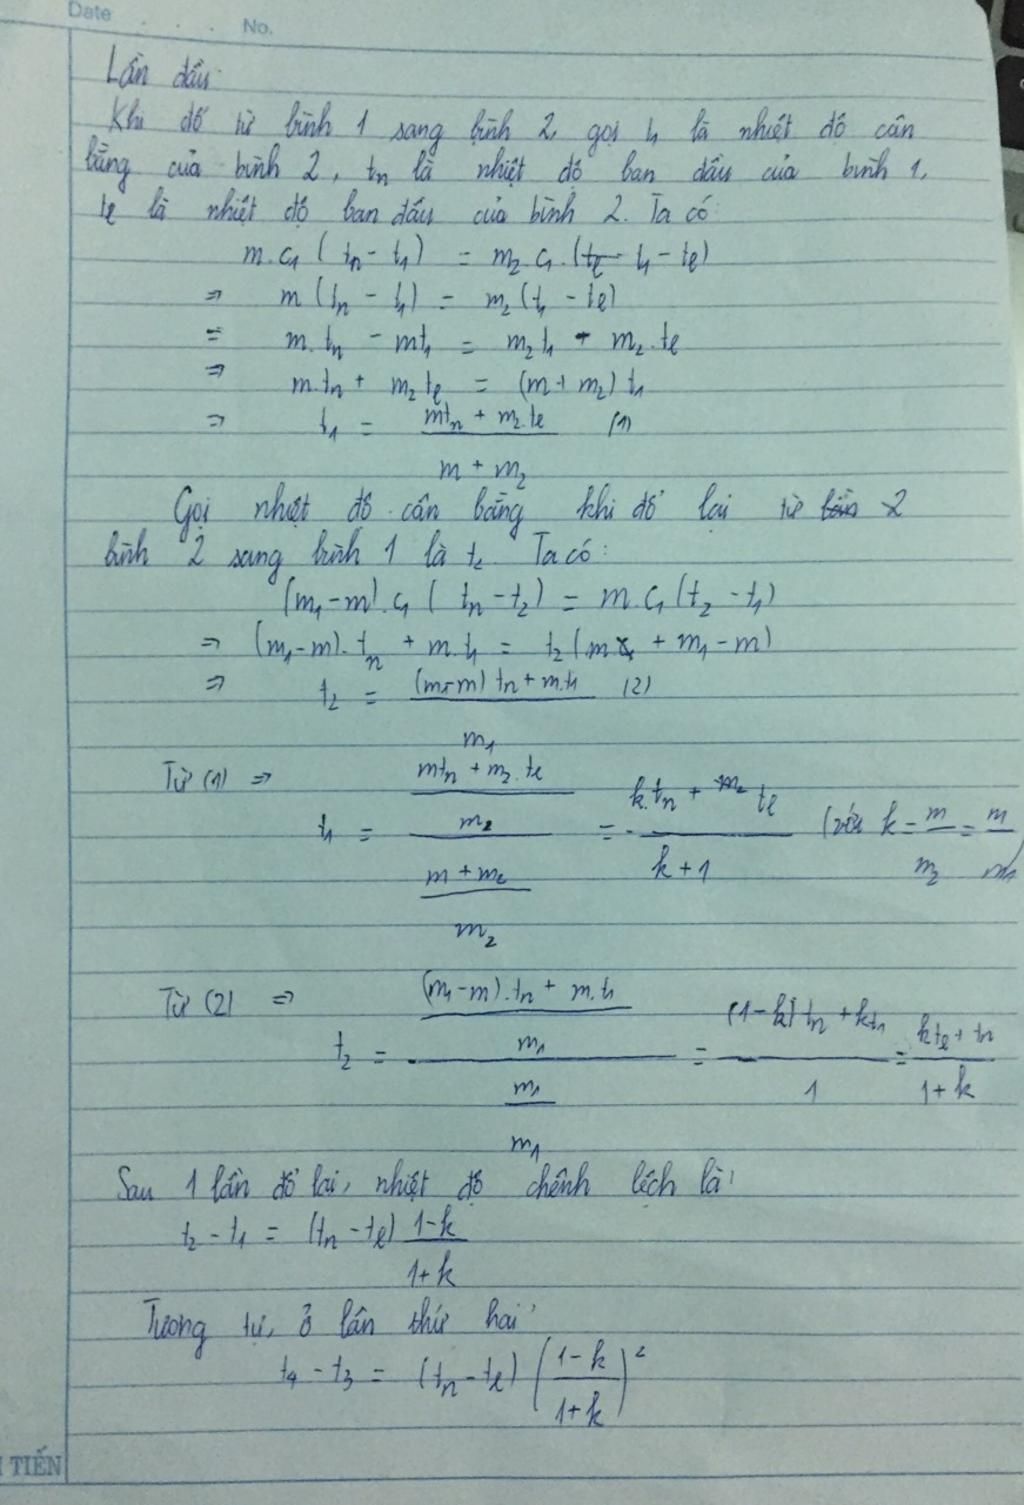 Date . . . No.
Lần đầu:
Khi đổ từ bình 1 sang bình 2, gọi t₁ là nhiệt độ cân
bằng của bình 2, tn là nhiệt độ ban đầu của bình 1,
tl là nhiệt độ ban đầu của bình 2. Ta có
m.c₁ (tn - t₁) = m₂.c₁.(t₁ - tl)
⇒ m (tn - t₁) = m₂ (t₁ - tl)
= m.tn - mt₁ = m₂t₁ - m₂.tl
⇒ m.tn + m₂tl = (m + m₂) t₁
⇒ t₁ = (mtn + m₂.tl) / (m + m₂) (1)
Gọi nhiệt độ cân bằng khi đổ lại từ
bình 2 sang bình 1 là t₂. Ta có:
(m₁-m).c₁ (tn - t₂) = m.c₁ (t₂ - t₁)
⇒ (m₁-m).tn + m.t₁ = t₂ (m + m₁ - m)
⇒ t₂ = ((m₁-m) tn + m.t₁) / m₁ (2)
Từ (1) ⇒ t₁ = ((mtn + m₂.tl) / m₂) / ((m + m₂) / m₂) = (k.tn + tl) / (k + 1) (với k = m/m₂ = m/m₁)
Từ (2) ⇒ t₂ = (((m₁-m).tn + m.t₁) / m₁) / (m₁ / m₁) = ((1-k)tn + kt₁) / 1 = (ktl + tn) / (1 + k)
Sau 1 lần đổ lại, nhiệt độ chênh lệch là:
t₂ - t₁ = (tn - tl) (1-k) / (1+k)
Tương tự, ở lần thứ hai:
t₄ - t₃ = (tn - tl) ((1-k) / (1+k))²
TIẾN